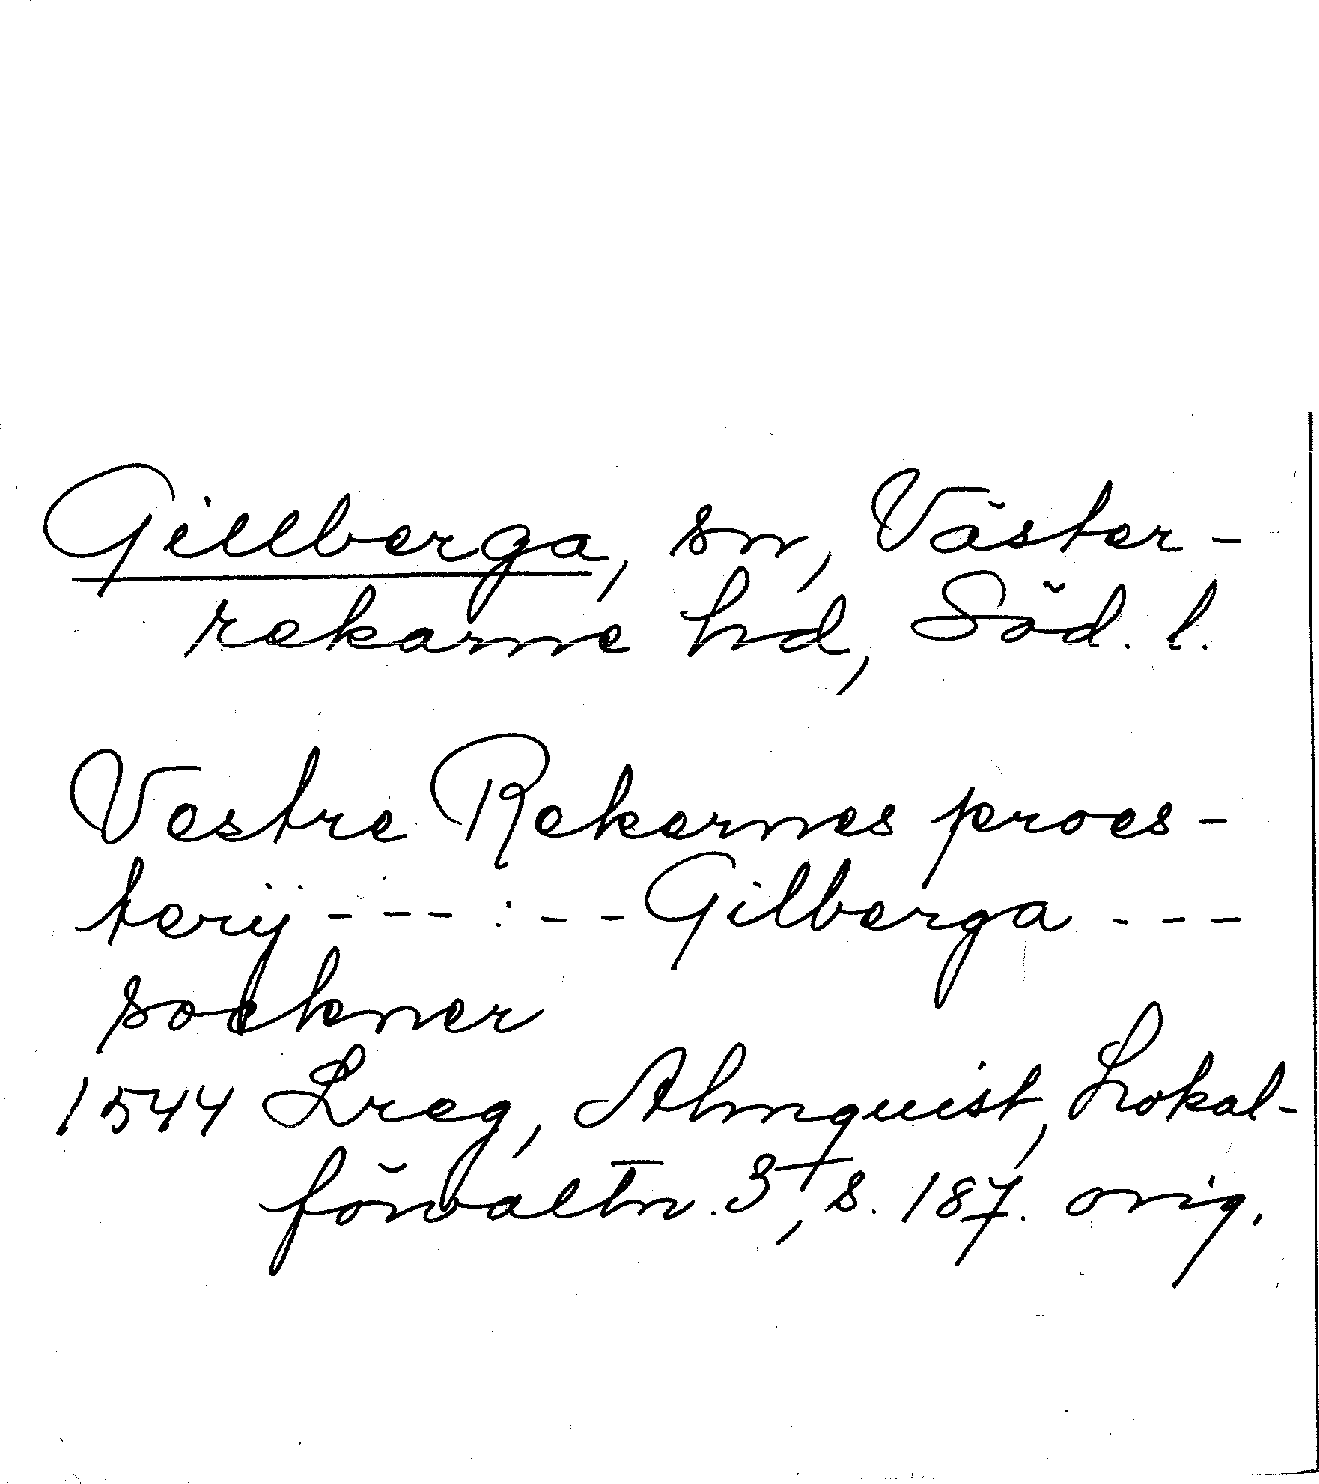 Gillberga, sn, Väster-
rekarne hd, Söd. l.
Vestre Rekernes proes-
terÿ --- : -- Gilberga ---
sockner
1544 Lreg, Almquist, Lokal-
förvaltn. 3, s. 187. orig.